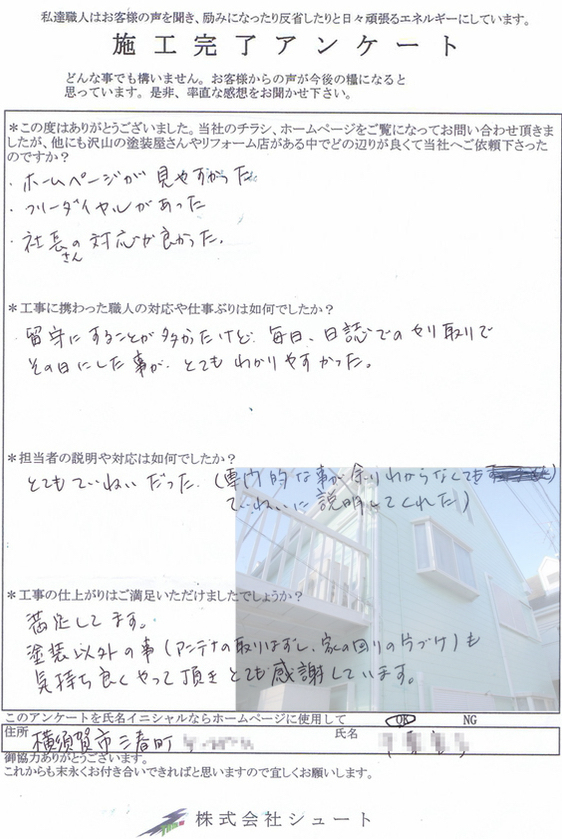 私達職人はお客様の声を聞き、励みになったり反省したりと日々頑張るエネルギーにしています。
施工完了アンケート
どんな事でも構いません。お客様からの声が今後の糧になると
思っています。是非、率直な感想をお聞かせ下さい。
＊この度はありがとうございました。当社のチラシ、ホームページをご覧になってお問い合わせ頂きま
したが、他にも沢山の塗装屋さんやリフォーム店がある中でどの辺りが良くて当社へご依頼下さった
のですか？
・ホームページが見やすかった
・フリーダイヤルがあった
・社長さんの対応が良かった。
＊工事に携わった職人の対応や仕事ぶりは如何でしたか？
留守にすることが多かったけど、毎日、日誌でのやり取りで
その日にした事が、とてもわかりやすかった。
＊担当者の説明や対応は如何でしたか？
とてもていねいだった。（専門的な事が余りわからなくても
ていねいに説明してくれた）
＊工事の仕上がりはご満足いただけましたでしょうか？
満足してます。
塗装以外の事（アンテナの取りはずし、家の回りの片づけ）も
気持ち良くやって頂きとても感謝しています。
このアンケートを氏名イニシャルならホームページに使用して OK NG
住所 横須賀市三春町 氏名
御協力ありがとうございます。
これからも末永くお付き合いできればと思いますので宜しくお願いします。
株式会社シュート